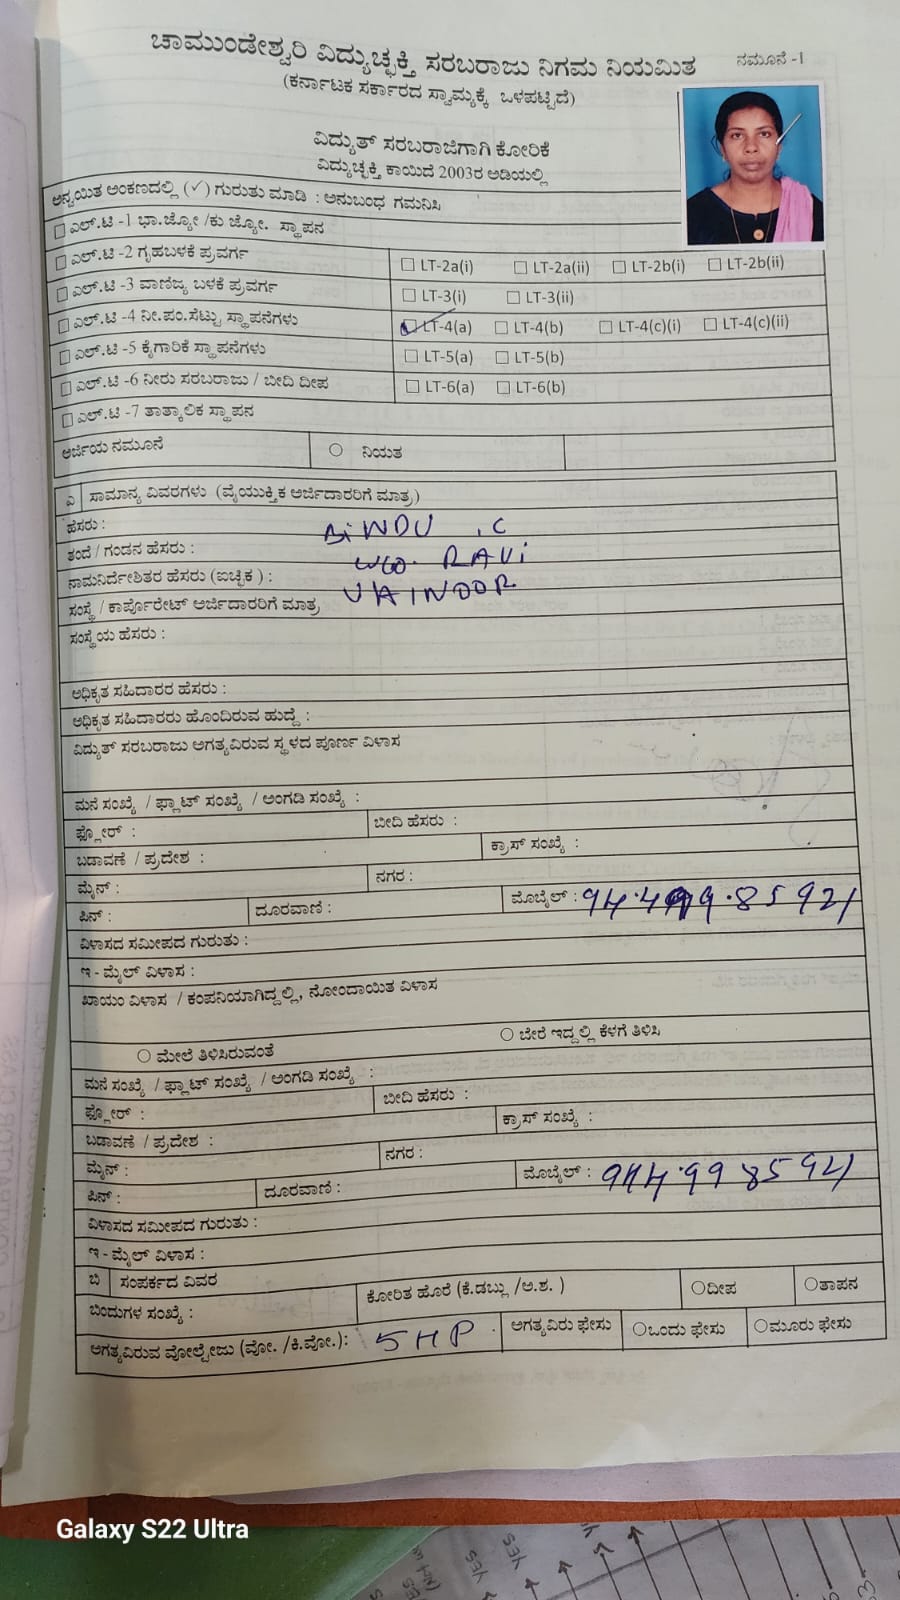 ಚಾಮುಂಡೇಶ್ವರಿ ವಿದ್ಯುಚ್ಛಕ್ತಿ ಸರಬರಾಜು ನಿಗಮ ನಿಯಮಿತ
ನಮೂನೆ -1
(ಕರ್ನಾಟಕ ಸರ್ಕಾರದ ಸ್ವಾಮ್ಯಕ್ಕೆ ಒಳಪಟ್ಟಿದೆ)
ವಿದ್ಯುತ್ ಸರಬರಾಜಿಗಾಗಿ ಕೋರಿಕೆ
ವಿದ್ಯುಚ್ಛಕ್ತಿ ಕಾಯಿದೆ 2003ರ ಅಡಿಯಲ್ಲಿ
ಅನ್ವಯಿತ ಅಂಕಣದಲ್ಲಿ (✓) ಗುರುತು ಮಾಡಿ : ಅನುಬಂಧ ಗಮನಿಸಿ
☐ ಎಲ್.ಟಿ -1 ಭಾ.ಜ್ಯೋ /ಕು ಜ್ಯೋ. ಸ್ಥಾಪನ
☐ ಎಲ್.ಟಿ -2 ಗೃಹಬಳಕೆ ಪ್ರವರ್ಗ ☐ LT-2a(i) ☐ LT-2a(ii) ☐ LT-2b(i) ☐ LT-2b(ii)
☐ ಎಲ್.ಟಿ -3 ವಾಣಿಜ್ಯ ಬಳಕೆ ಪ್ರವರ್ಗ ☐ LT-3(i) ☐ LT-3(ii)
☐ ಎಲ್.ಟಿ -4 ನೀ.ಪಂ.ಸೆಟ್ಟು ಸ್ಥಾಪನೆಗಳು ☑ LT-4(a) ☐ LT-4(b) ☐ LT-4(c)(i) ☐ LT-4(c)(ii)
☐ ಎಲ್.ಟಿ -5 ಕೈಗಾರಿಕೆ ಸ್ಥಾಪನೆಗಳು ☐ LT-5(a) ☐ LT-5(b)
☐ ಎಲ್.ಟಿ -6 ನೀರು ಸರಬರಾಜು / ಬೀದಿ ದೀಪ ☐ LT-6(a) ☐ LT-6(b)
☐ ಎಲ್.ಟಿ -7 ತಾತ್ಕಾಲಿಕ ಸ್ಥಾಪನ
ಅರ್ಜಿಯ ನಮೂನೆ ○ ನಿಯತ
ಎ ಸಾಮಾನ್ಯ ವಿವರಗಳು (ವೈಯುಕ್ತಿಕ ಅರ್ಜಿದಾರರಿಗೆ ಮಾತ್ರ)
ಹೆಸರು : BiNDU .C
ತಂದೆ / ಗಂಡನ ಹೆಸರು : W/O. RAVi
ನಾಮನಿರ್ದೇಶಿತರ ಹೆಸರು (ಐಚ್ಛಿಕ ) :
ಸಂಸ್ಥೆ / ಕಾರ್ಪೊರೇಟ್ ಅರ್ಜಿದಾರರಿಗೆ ಮಾತ್ರ
ಸಂಸ್ಥೆಯ ಹೆಸರು :
ಅಧಿಕೃತ ಸಹಿದಾರರ ಹೆಸರು :
ಅಧಿಕೃತ ಸಹಿದಾರರು ಹೊಂದಿರುವ ಹುದ್ದೆ :
ವಿದ್ಯುತ್ ಸರಬರಾಜು ಅಗತ್ಯವಿರುವ ಸ್ಥಳದ ಪೂರ್ಣ ವಿಳಾಸ
ಮನೆ ಸಂಖ್ಯೆ / ಫ್ಲಾಟ್ ಸಂಖ್ಯೆ / ಅಂಗಡಿ ಸಂಖ್ಯೆ :
ಫ್ಲೋರ್ : ಬೀದಿ ಹೆಸರು :
ಬಡಾವಣೆ / ಪ್ರದೇಶ : ಕ್ರಾಸ್ ಸಂಖ್ಯೆ :
ಮೈನ್ : ನಗರ :
ಪಿನ್ : ದೂರವಾಣಿ : ಮೊಬೈಲ್ :
ವಿಳಾಸದ ಸಮೀಪದ ಗುರುತು :
ಇ - ಮೈಲ್ ವಿಳಾಸ :
ಖಾಯಂ ವಿಳಾಸ / ಕಂಪನಿಯಾಗಿದ್ದಲ್ಲಿ, ನೋಂದಾಯಿತ ವಿಳಾಸ
○ ಮೇಲೆ ತಿಳಿಸಿರುವಂತೆ ○ ಬೇರೆ ಇದ್ದಲ್ಲಿ ಕೆಳಗೆ ತಿಳಿಸಿ
ಮನೆ ಸಂಖ್ಯೆ / ಫ್ಲಾಟ್ ಸಂಖ್ಯೆ / ಅಂಗಡಿ ಸಂಖ್ಯೆ :
ಫ್ಲೋರ್ : ಬೀದಿ ಹೆಸರು :
ಬಡಾವಣೆ / ಪ್ರದೇಶ : ಕ್ರಾಸ್ ಸಂಖ್ಯೆ :
ಮೈನ್ : ನಗರ :
ಪಿನ್ : ದೂರವಾಣಿ : ಮೊಬೈಲ್ :
ವಿಳಾಸದ ಸಮೀಪದ ಗುರುತು :
ಇ - ಮೈಲ್ ವಿಳಾಸ :
ಬಿ ಸಂಪರ್ಕದ ವಿವರ
ಬಿಂದುಗಳ ಸಂಖ್ಯೆ : ಕೋರಿತ ಹೊರೆ (ಕೆ.ಡಬ್ಲು /ಅ.ಶ. ) ○ದೀಪ ○ತಾಪನ
ಅಗತ್ಯವಿರುವ ವೋಲ್ಟೇಜು (ವೋ. /ಕಿ.ವೋ.): 5 HP . ಅಗತ್ಯವಿರು ಫೇಸು ○ಒಂದು ಫೇಸು ○ಮೂರು ಫೇಸು
Galaxy S22 Ultra